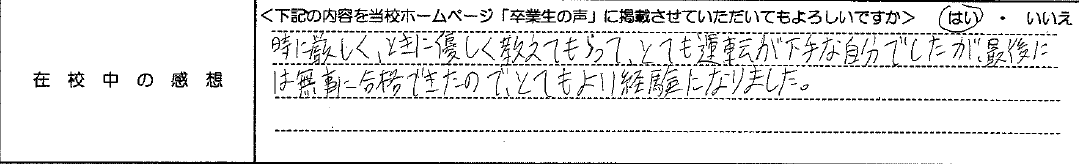 <下記の内容を当校ホームページ「卒業生の声」に掲載させていただいてもよろしいですか> はい ・ いいえ
在校中の感想
時に厳しく、ときに優しく教えてもらって、とても運転が下手な自分でしたが、最後に
は無事に合格できたので、とてもよい経験になりました。